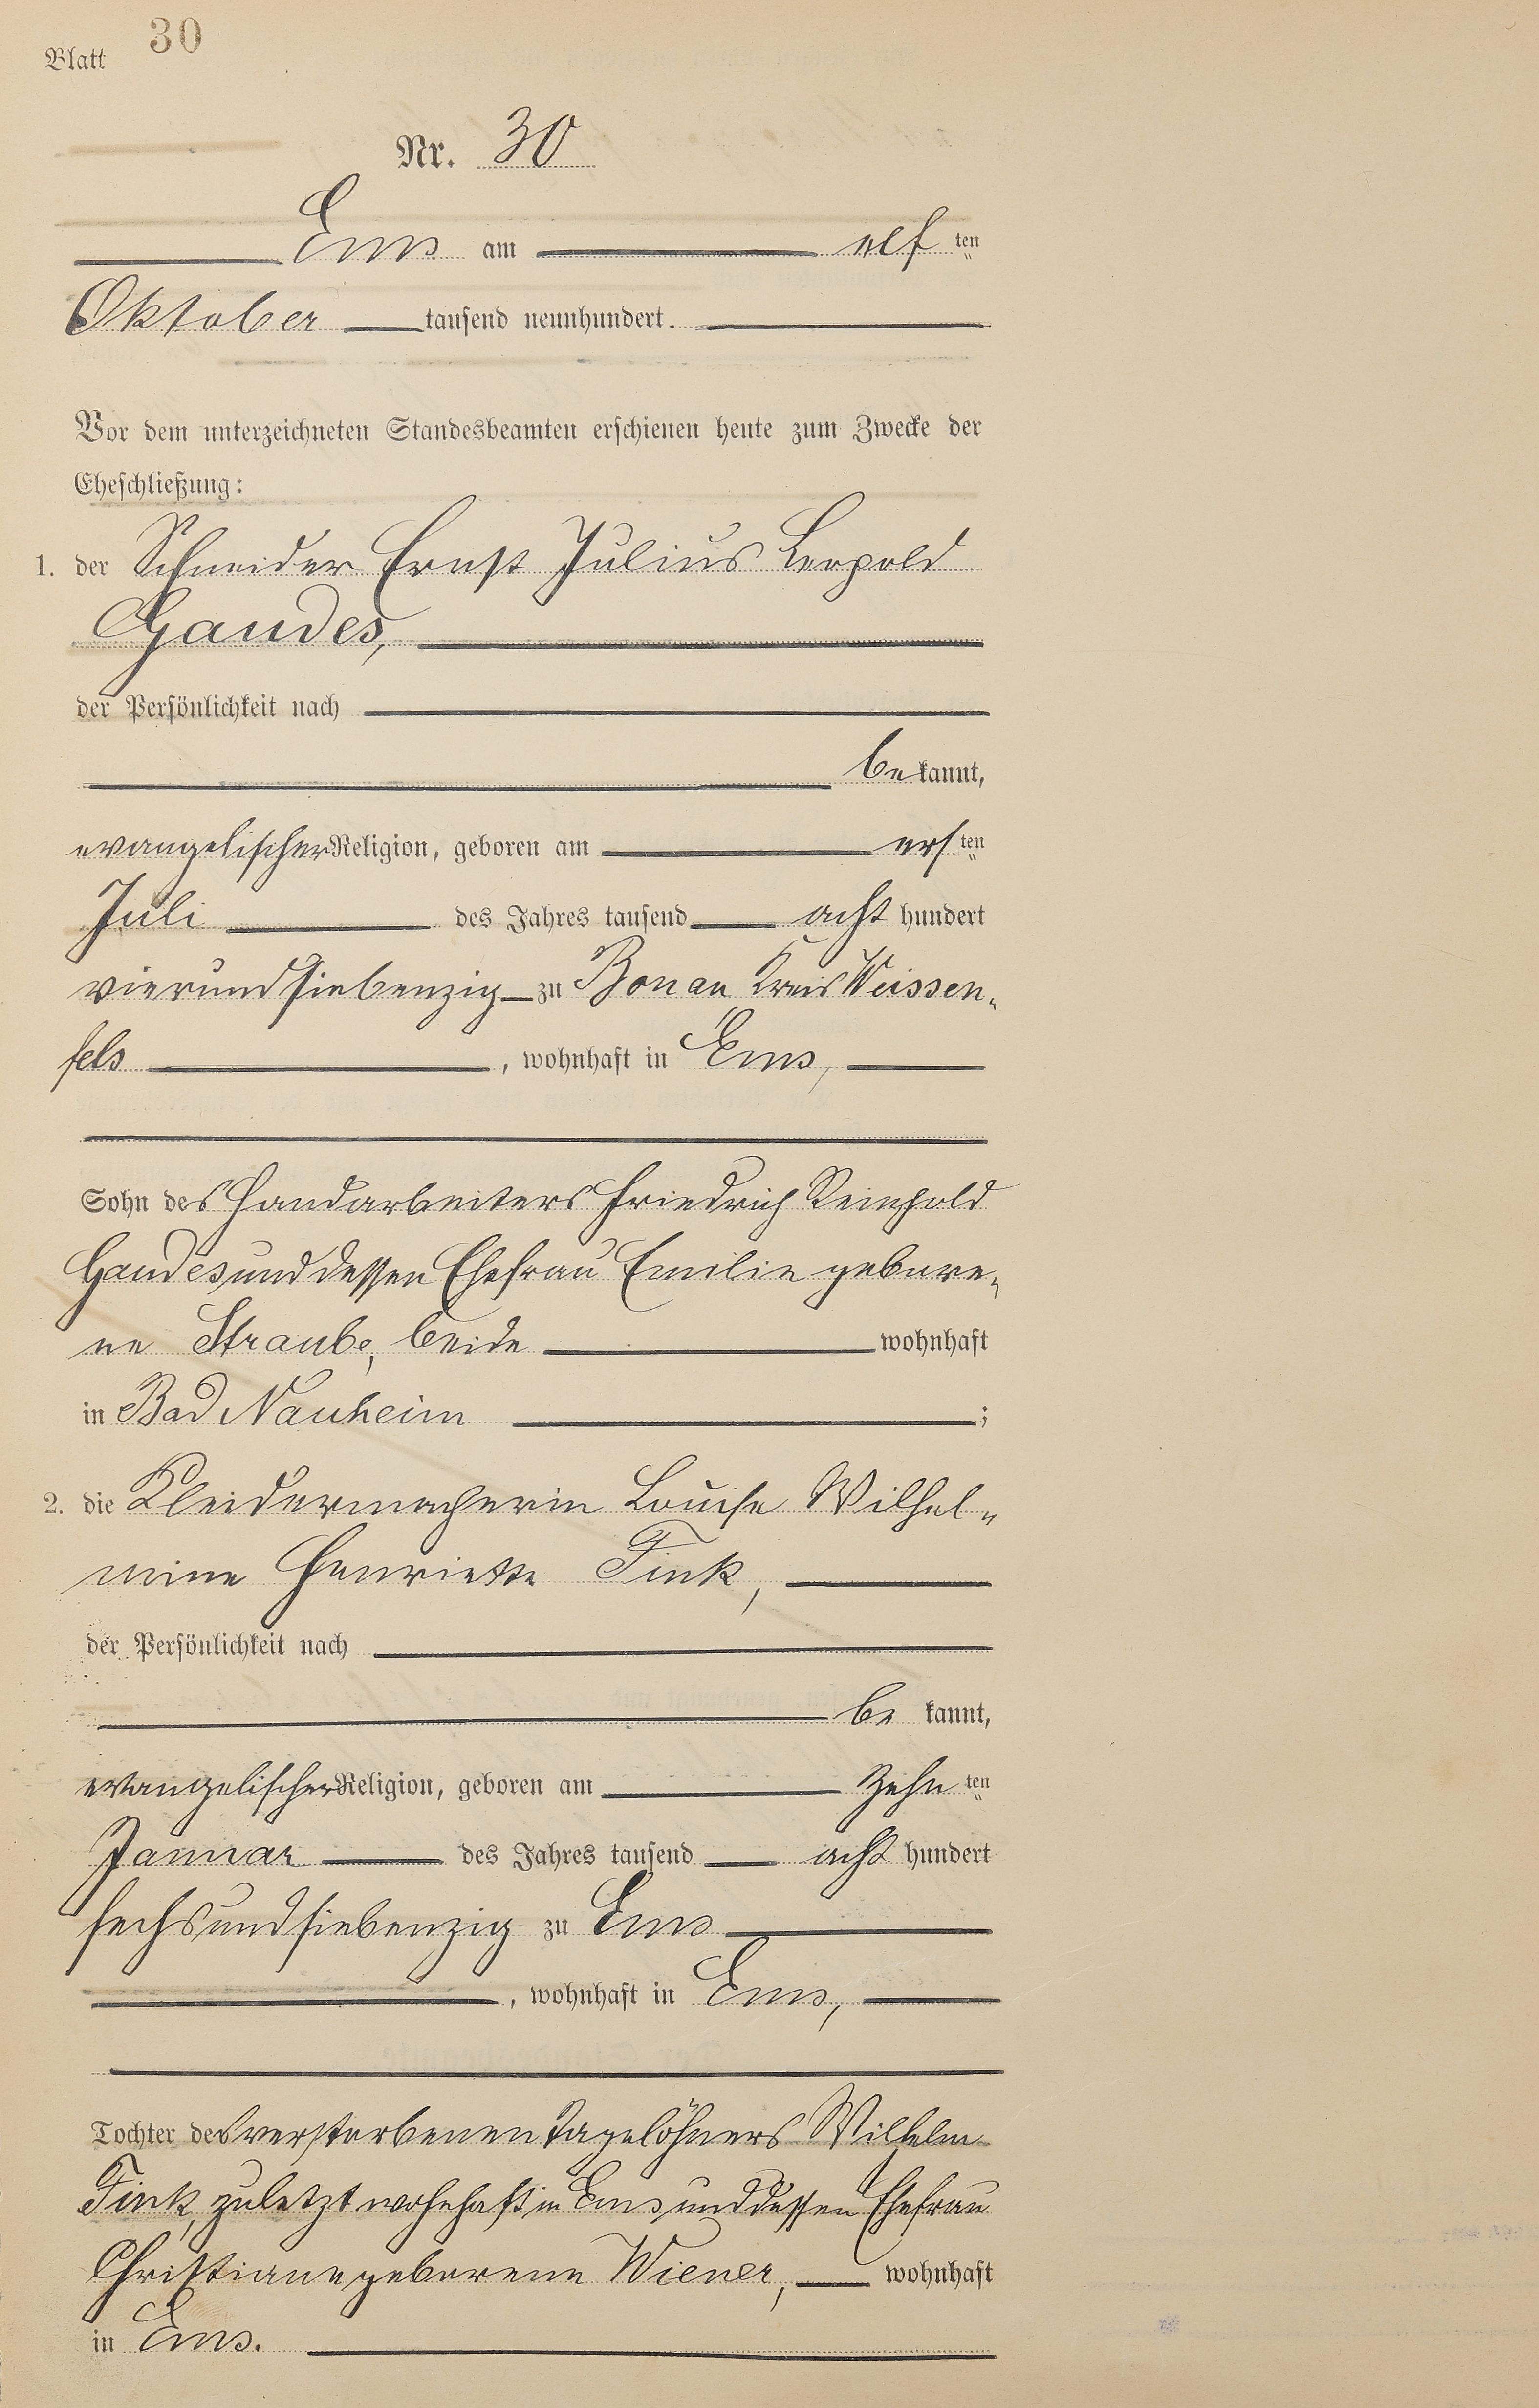 Blatt 30
Nr. 30
Ems am elf ten
Oktober tausend neunhundert.
Vor dem unterzeichneten Standesbeamten erschienen heute zum Zwecke der
Eheschließung:
1. der Schneider Ernst Julius Leopold
Gaudes,
der Persönlichkeit nach
bekannt,
evangelischer Religion, geboren am ersten
Juli des Jahres tausend acht hundert
vierundsiebenzig zu Bonau Kreis Weissen„
fels, wohnhaft in Ems,
Sohn des Handarbeiters Friedrich Reinhold
Gaudes und dessen Ehefrau Emilie gebore„
ne Straube, beide wohnhaft
in Bad Nauheim ;
2. die Kleidermacherin Louise Wilhel„
mine Henriette Fink,
der Persönlichkeit nach
be kannt,
evangelischer Religion, geboren am zehn ten
Januar des Jahres tausend acht hundert
sechsundsiebenzig zu Ems
, wohnhaft in Ems,
Tochter des verstorbenen Tagelöhners Wilhelm
Fink, zuletzt wohnhaft in Ems und dessen Ehefrau
Christiane geborene Wiener, wohnhaft
in Ems.